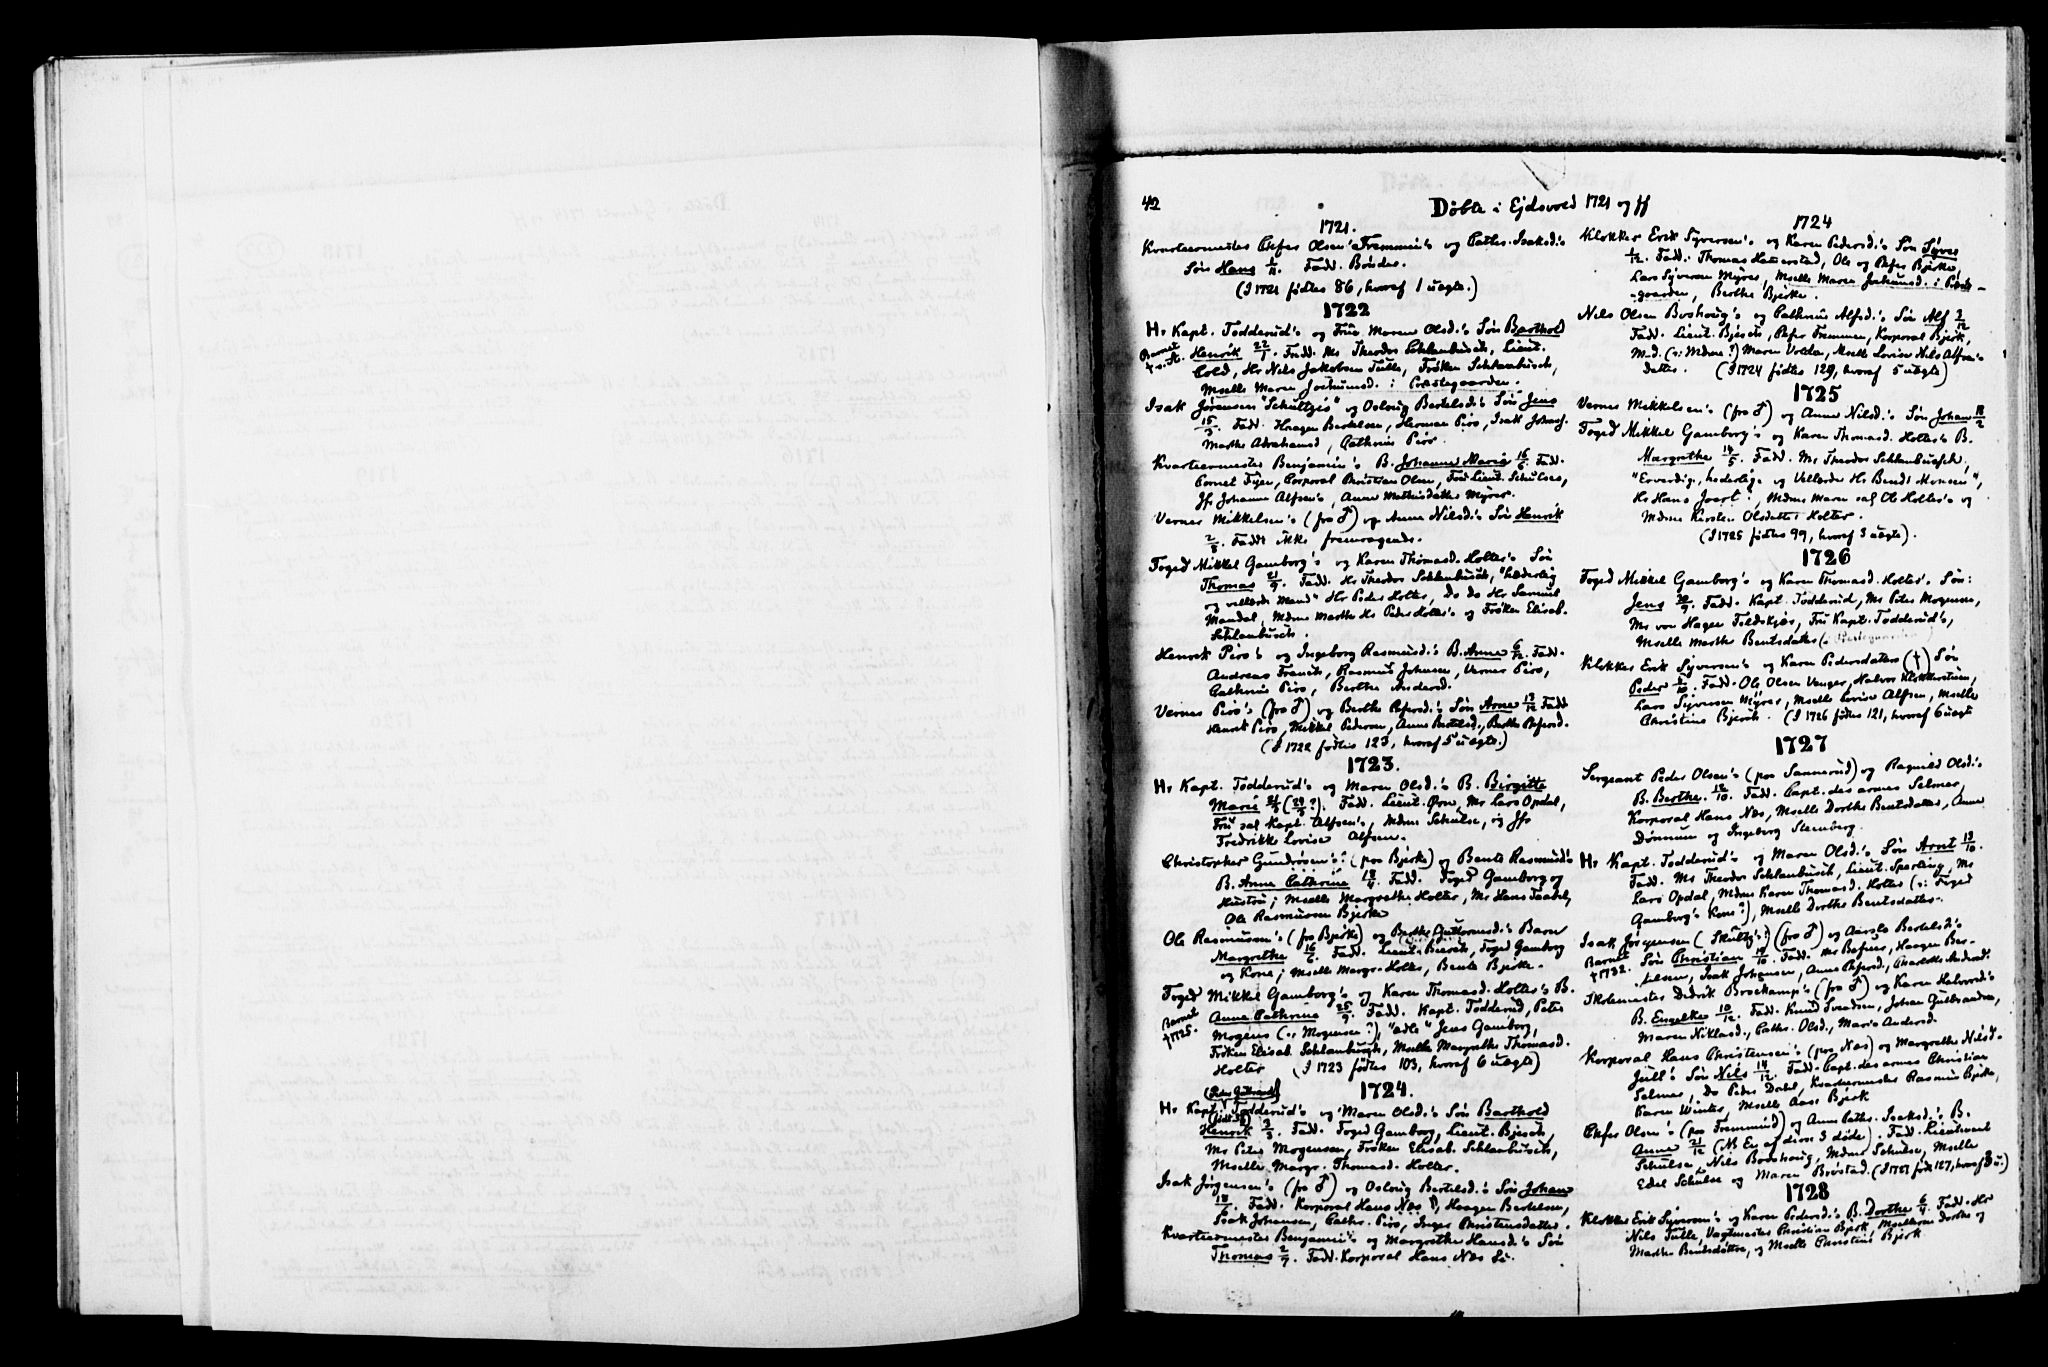 42
Døbte i Ejdsvold 1721 og ff
1721.
Kvarteermester Peter Olsen Fremmin's og Cathr. Isaksd.'s
Søn Hans 1/11. Fadd. Bønder.
(I 1721 fødtes 86, hvoraf 1 uægte.)
1722
Hr Kapt. Todderud's og Frue Maren Olsd.'s Søn Barthold
Barnet
Henrik 22/1. Fadd. Mr Theodor Schlanbusch, Lieut.
Cold, Hr Nils Jakobsen Tulle, Frøken Schlanbusch,
Mselle Maren Jochumsd. i Præstegaarden.
Isak Jørgensen "Schultzis" og Oslaug Bertelsd.'s Søn Jens
15/3. Fadd. Haagen Bertelsen, Herman Piro, Isak Johns.
Marthe Abrahamsd, Cathrine Piro.
Kvarteermester Benjamin's B. Johanne Marie 16/6. Fadd.
Cornet Fyen, Corporal Christian Olsen, Frue Lieut. Schulse,
Jfr Johanne Alfsen's, Anne Mathisdatter Myrer.
Verner Mikkelsen's (fra ♂) og Anne Nilsd.'s Søn Henrik
2/8. Fadd. ikke fremragende.
Foged Mikkel Gamborg's og Karen Thomasd. Holter's Søn
Thomas 21/9. Fadd. Hr Theodor Schlanbusch, "hæderlig
og vellærde Mand" Hr Peder Holter, Do do Hr Samuel
Mandal, Mdme Marthe Hr Peder Holter's og Frøken Elisab.
Schlanbusch.
Henrik Piro's og Ingeborg Rasmusd.'s B. Anne 6/12. Fadd.
Andreas Franck, Rasmus Johnsen, Verner Piro,
Cathrine Piro, Berthe Andersd.
Verner Piro's (fra ♂) og Berthe Pefersd.'s Søn Arne 13/12 Fadd
Henrik Piro, Mikkel Pedersen, Anne Bertelsd., Berthe Pefersd.
(I 1722 fødtes 123, hvoraf 5 uægte.)
1723.
Hr Kapt. Todderud's og Maren Olsd.'s B. Birgitte
Marie (29/3?). Fadd. Lieut. Ørn, Mr Lars Opdal,
Frue sal Kapt. Alfsen's, Mdme Schulse, og Jfr
Fredrikke Lovise Alfsen.
Christopher Gundrosen's? (paa Bjerke) og Bente Rasmusd's
B. Anne Cathrine 18/4. Fadd. Foged Gamborg og
Hustru, Mselle Margrethe Holter, Mr Hans Taabel,
Ole Rasmussen Bjerke
Ole Rasmussen's (fra Bjerke) og Berthe Guttormsd.'s Barn
Margrethe 16/6. Fadd. Lieut. Bjersch, Foged Gamborg
og Kone; Mselle Margr. Holter, Bente Bjerke.
Foged Mikkel Gamborg's og Karen Thomasd. Holter's B.
Barnet
† 1725.
Anne Cathrine 25/9. Fadd. Kapt. Todderud, Peter
Mogens (ɔ: Mogensen?), "ædle" Jens Gamborg,
Frøken Elisab. Schlanbusch, Mselle Margrethe Thomasd.
Holter (I 1723 fødtes 103, hvoraf 6 uægte)
1724.
Hr Kapt. Todderud's og Maren Olsd.'s Søn Barthold
Henrik 2/3. Fadd. Foged Gamborg, Lieut. Bjersch,
Mr Peter Mogensen, Frøken Elisab. Schlanbusch,
Mselle Margr. Thomasd. Holter.
Isak Jørgensen's (fra ♂) og Oslaug Bertelsd.'s Søn Johan
18/6. Fadd. Korporal Hans Næs, Haagen Bertelsen,
Isak Johansen, Cathr. Piro, Inger Christensdatter.
Kvarteermester Benjamin's og Margrethe Hansd.'s Søn
Thomas 2/7. Fadd. Korporal Hans Næs
1724
Klokker Erik Syversen's og Karen Pedersd.'s Søn Syver
1/12. Fadd. Thomas Hammerstad, Ole og Pefer Bjerke,
Lars Syversen Myrer, Mselle Maren Jochumsd. i Præste-
-gaarden, Berthe Bjerke.
Nils Olsen Boshoug's og Cathrine Alfsd.'s Søn Alf 3/12
Fadd. Lieut. Bjersch, Pefer Fremmen, Korporal Bjerk,
M-d. (ɔ: Mdme?) Maren Volden, Mselle Lovise Nils Alfsen's
datter. (I 1724 fødtes 129, hvoraf 5 uægte)
1725
Verner Mikkelsen's (fra ♂) og Anne Nilsd.'s Søn Johan 18/2
Foged Mikkel Gamborg's og Karen Thomasd. Holter's B.
Margrethe 14/5. Fadd. Mr Theodor Schlanbusch,
"Erværdig, hæderlig og Vellærde Hr Bendt Monsen",
Hr Hans Joart?, Mdme Maren sal Ole Holter's og
Mdme Kirsten Olsdatter Holter.
(I 1725 fødtes 99, hvoraf 3 uægte).
1726
Foged Mikkel Gamborg's og Karen Thomasd. Holter's Søn:
Jens. Fadd. Kapt. Todderud, Mr Peter Mogensen,
Mr von Hagen Feldskjær, Fru Kapt. Todderud's,
Mselle Marthe Bentsdatter
Klokker Erik Syversen's og Karen Pedersdatters (†) Søn
Peder. Fadd. Ole Olsen Venger, Halvor Klokkerstuen,
Lars Syversen Myrer, Mselle Lovise Alfsen, Mselle
Christine Bjerck. (I 1726 fødtes 121, hvoraf 6 uægte
1727
Sergeant Peder Olsen's (paa Sannerud) og Ragnild Olsd.'s
B. Berthe. 12/10. Fadd. Capt. des armes Selmer,
Korporal Hans Næs, Mselle Dorthe Bentsdatter, Anne
Dønnum og Ingeborg Steenberg.
Hr Kapt. Todderud's og Maren Olsd.'s Søn Arnt 19/10.
Fadd. Mr Theodor Schlanbusch, Lieut. Sperling, Mr
Lars Opdal, Mdme Karen Thomasd. Holter (ɔ: Foged
Gamborg's Kone?), Mselle Dorthe Bentsdatter.
Isak Jørgensen (Skultz's?) (fra ♂) og Aaroe Bertelsd.'s
Barnet
† 1732.
Søn Christian 19/10. Fadd. Mr Bafues, Haagen Ber-
telsen, Isak Johansen, Anne Pefersd., Charlotte Andersd.
Skolemester Didrik Brockamp's (fra ♂) og Karen Halvorsd.'s
B. Engelke 10/12. Fadd. Knud Svendsen, Johan Gulbrandsen,
Maren Niklasd., Cathr. Olsd., Marie Andersd.
Korporal Hans Christensen's (paa Næs) og Margrethe Nilsd.
Jull's Søn Nils 14/12. Fadd. Capt. des armes Christian
Selmer, Do Peder Dahl, Kvarteermester Rasmus Bjerke,
Karen Winter, Mselle Aase Bjerk
Pefer Olsen's (paa Fremmind) og Anne Cathr. Isaksd.'s B.
Anne 21/12 (NB En af disse 3 døde). Fadd. Lieutenant
Schulse, Nils Boshoug, Mdme Schulse, Mselle
Edel Schulse og Maren Brøstad. (I 1727 født 127, hvoraf 3 u.)
1728
Klokker Erik Syversen's og Karen Pedersd.'s B. Dorthe 6/4. Fadd. Hr
Nils Tulle, Vagtmester Christian Bjerk, Msellerne Dorthe og
Marthe Bentsdøttre, og Mselle Christine Bjerk